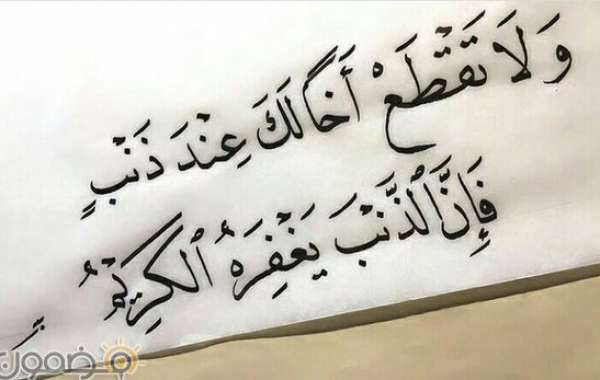 وَلَا تَقْطَعْ أَخًا لَكَ عِنْدَ ذَنْبٍ
فَإِنَّ الذَّنْبَ يَغْفِرُهُ الْكَرِيْمُ
مضمون